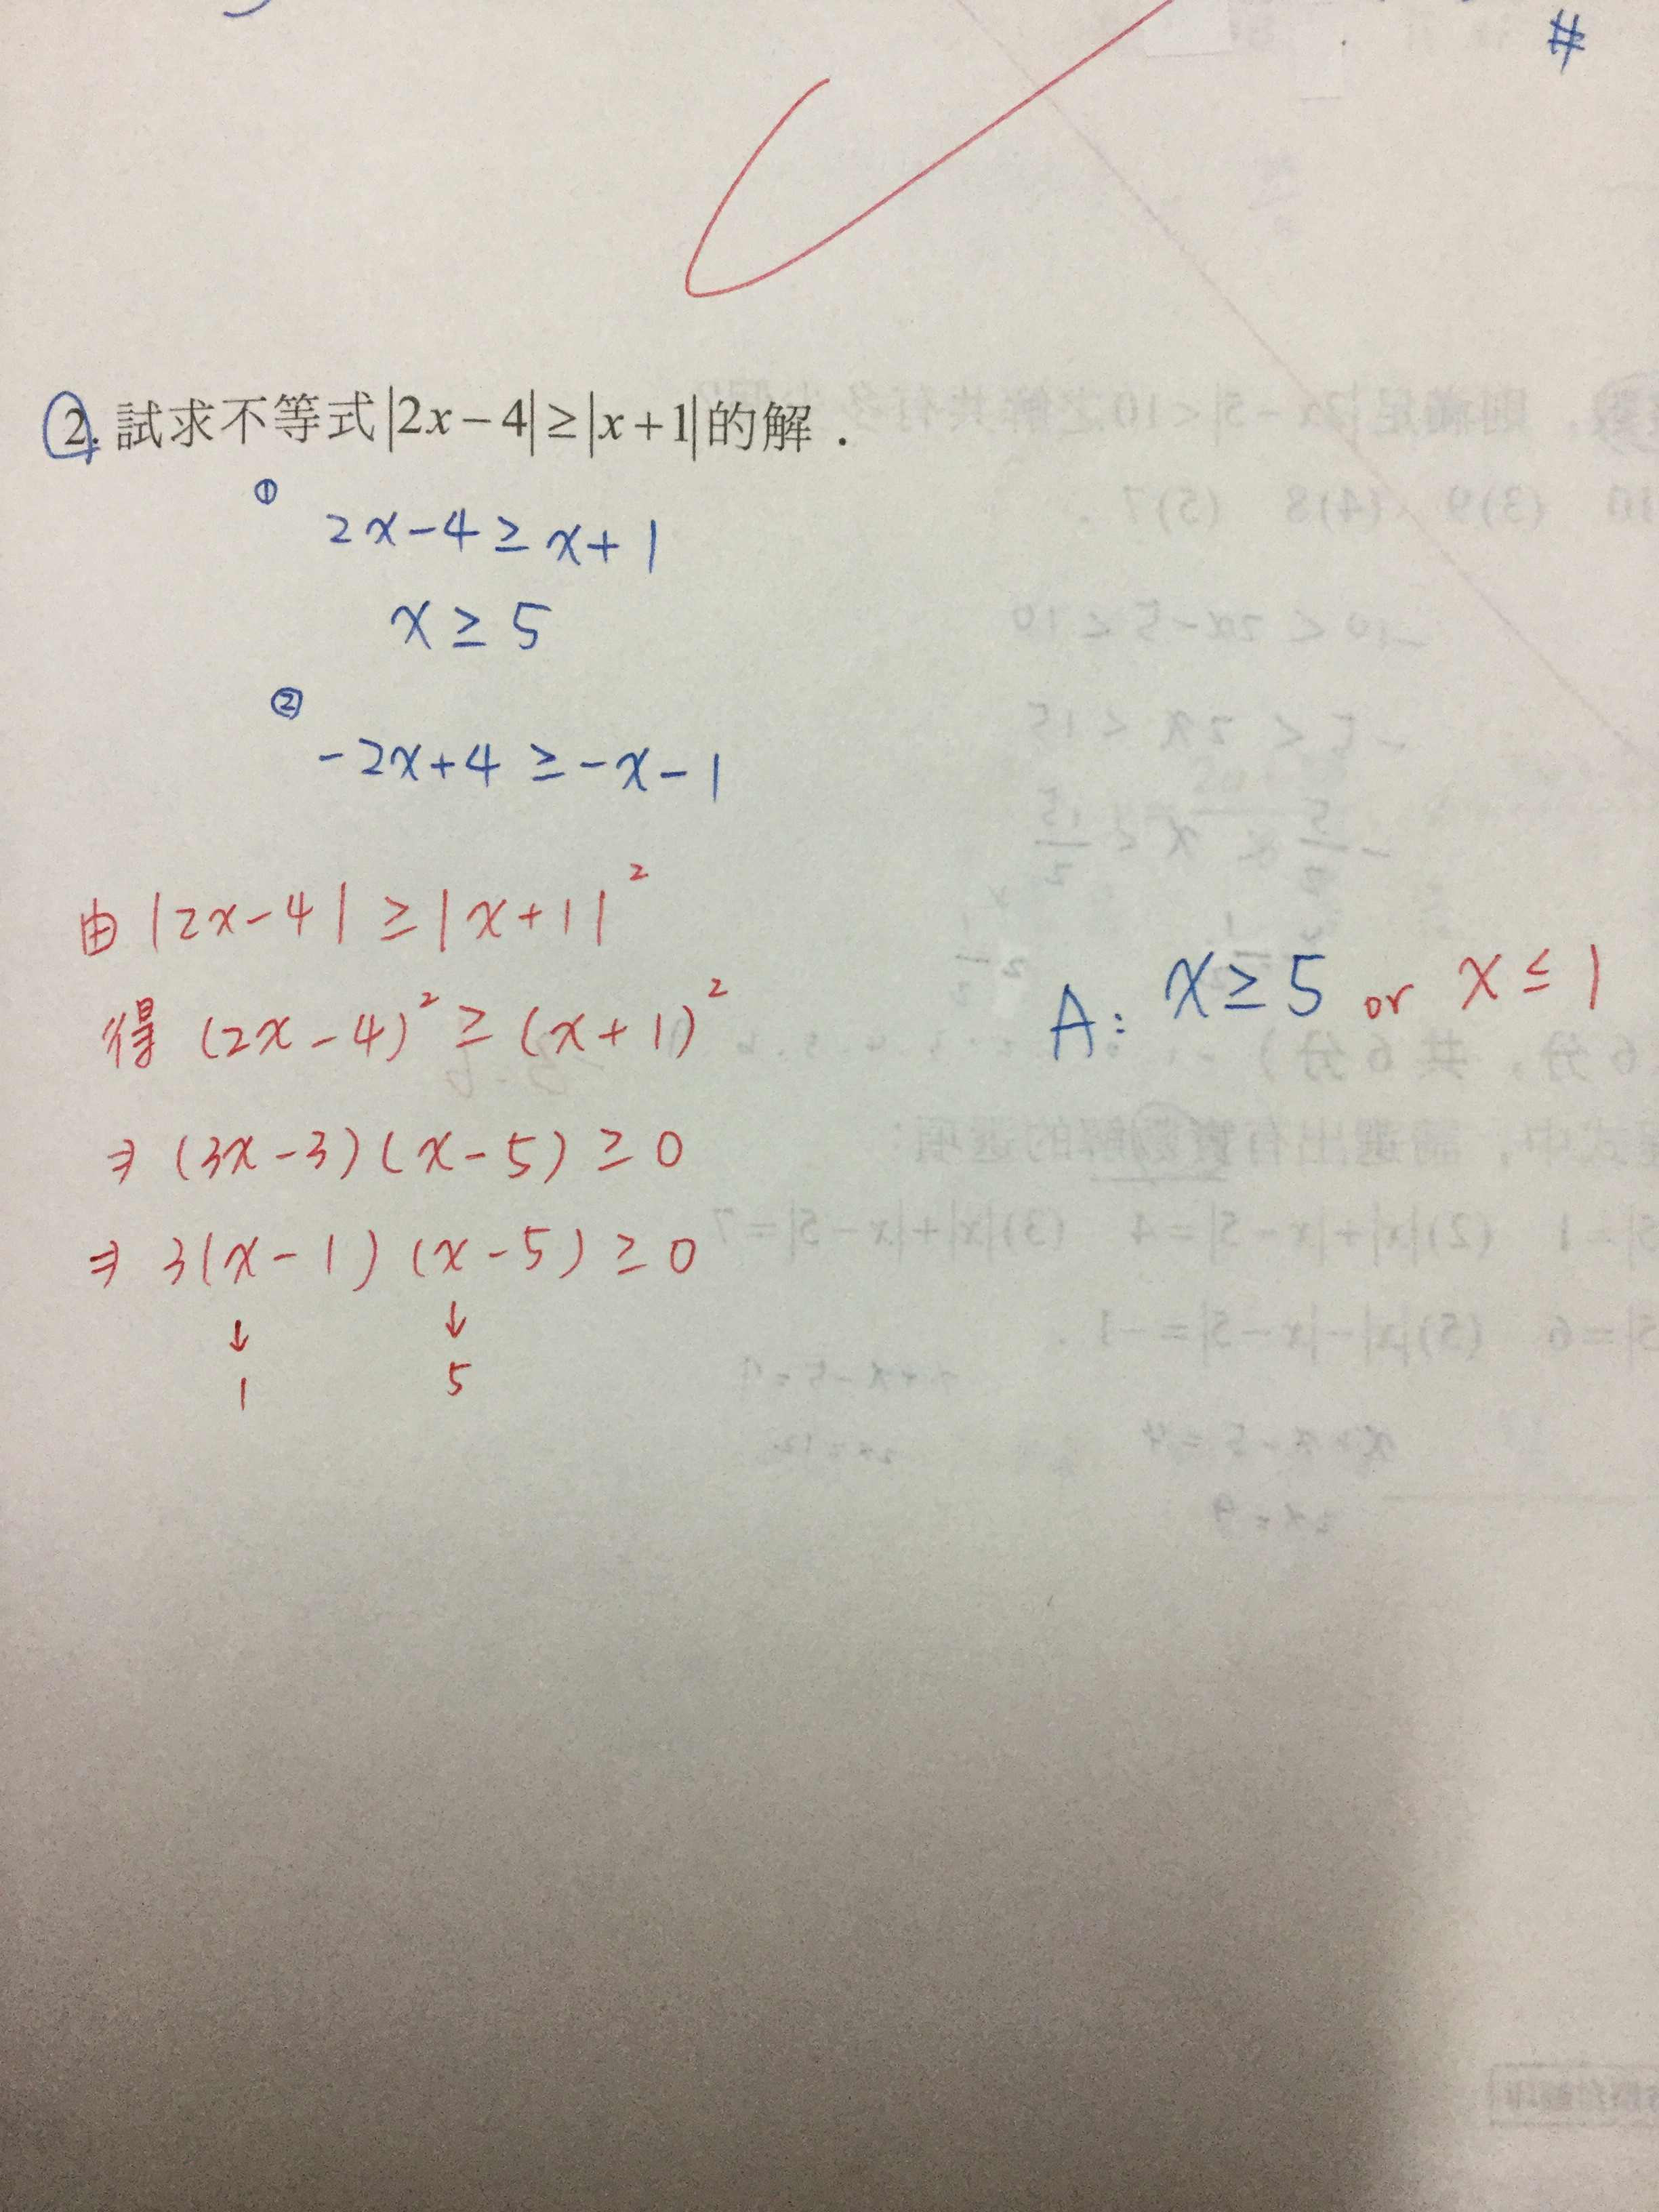 #
2. 試求不等式|2x-4|≥|x+1|的解.
①
2x-4≥x+1
x≥5
②
-2x+4≥-x-1
由|2x-4|≥|x+1|²
得(2x-4)²≥(x+1)²
⇒(3x-3)(x-5)≥0
⇒3(x-1)(x-5)≥0
↓ ↓
1 5
A: x≥5 or x≤1